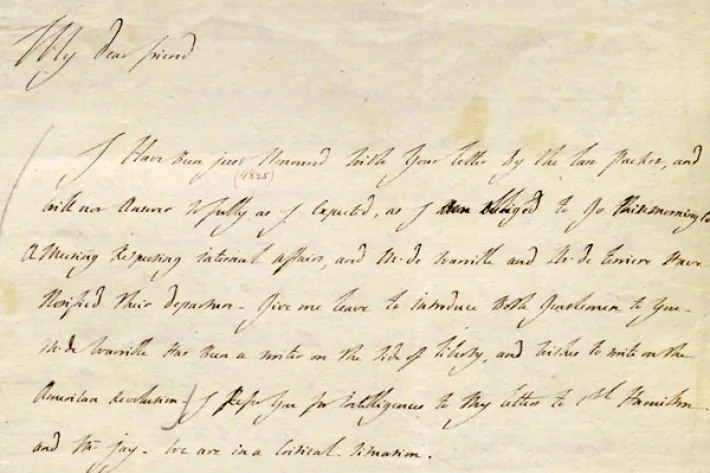 My dear friend
I Have Been just Honoured With Your letter By the last Packet, and
(4825)
will not Answer So fully as I Expected, as I am obliged to Go this morning to
A Meeting Respecting internal affairs, and M. de Warville and M. de have
Notified their departure - Give me leave to introduce Both Gentlemen to You -
M. de Warville Has Been a writer on the Side of liberty, and wishes to write on the
American Revolution - I Refer You for intelligences to My letters to Hamilton
and Mr Jay - We are in a Critical Situation.